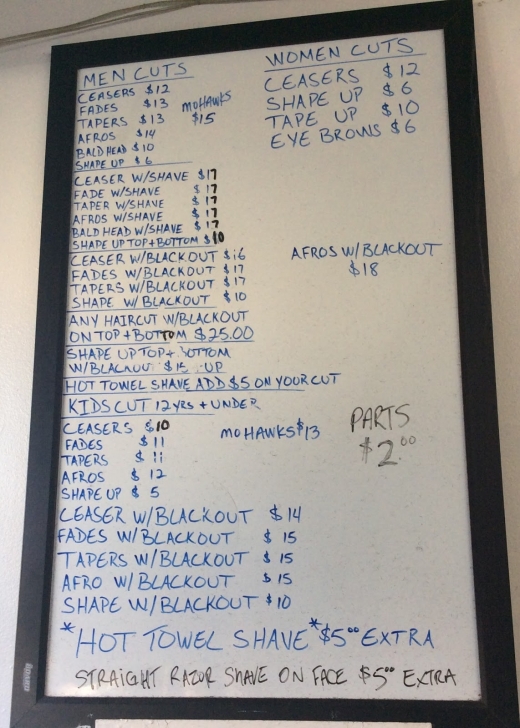 MEN CUTS
CEASERS $12
FADES $13
TAPERS $13
AFROS $14
BALD HEAD $10
SHAPE UP $6
MOHAWKS
$15
WOMEN CUTS
CEASERS $12
SHAPE UP $6
TAPE UP $10
EYE BROWS $6
CEASER W/SHAVE $17
FADE W/SHAVE $17
TAPER W/SHAVE $17
AFROS W/SHAVE $17
BALD HEAD W/SHAVE $17
SHAPE UP TOP+BOTTOM $10
CEASER W/BLACKOUT $16
FADES W/BLACKOUT $17
TAPERS W/BLACKOUT $17
SHAPE W/BLACKOUT $10
AFROS W/BLACKOUT
$18
ANY HAIRCUT W/BLACKOUT
ON TOP+BOTTOM $25.00
SHAPE UP TOP+BOTTOM
W/BLACKOUT $15 UP
HOT TOWEL SHAVE ADD $5 ON YOUR CUT
KIDS CUT 12 YRS + UNDER
CEASERS $10
FADES $11
TAPERS $11
AFROS $12
SHAPE UP $5
MOHAWKS $13
PARTS
$2.00
CEASER W/BLACKOUT $14
FADES W/BLACKOUT $15
TAPERS W/BLACKOUT $15
AFRO W/BLACKOUT $15
SHAPE W/BLACKOUT $10
*HOT TOWEL SHAVE* $5.00 EXTRA
STRAIGHT RAZUR SHAVE ON FACE $5.00 EXTRA